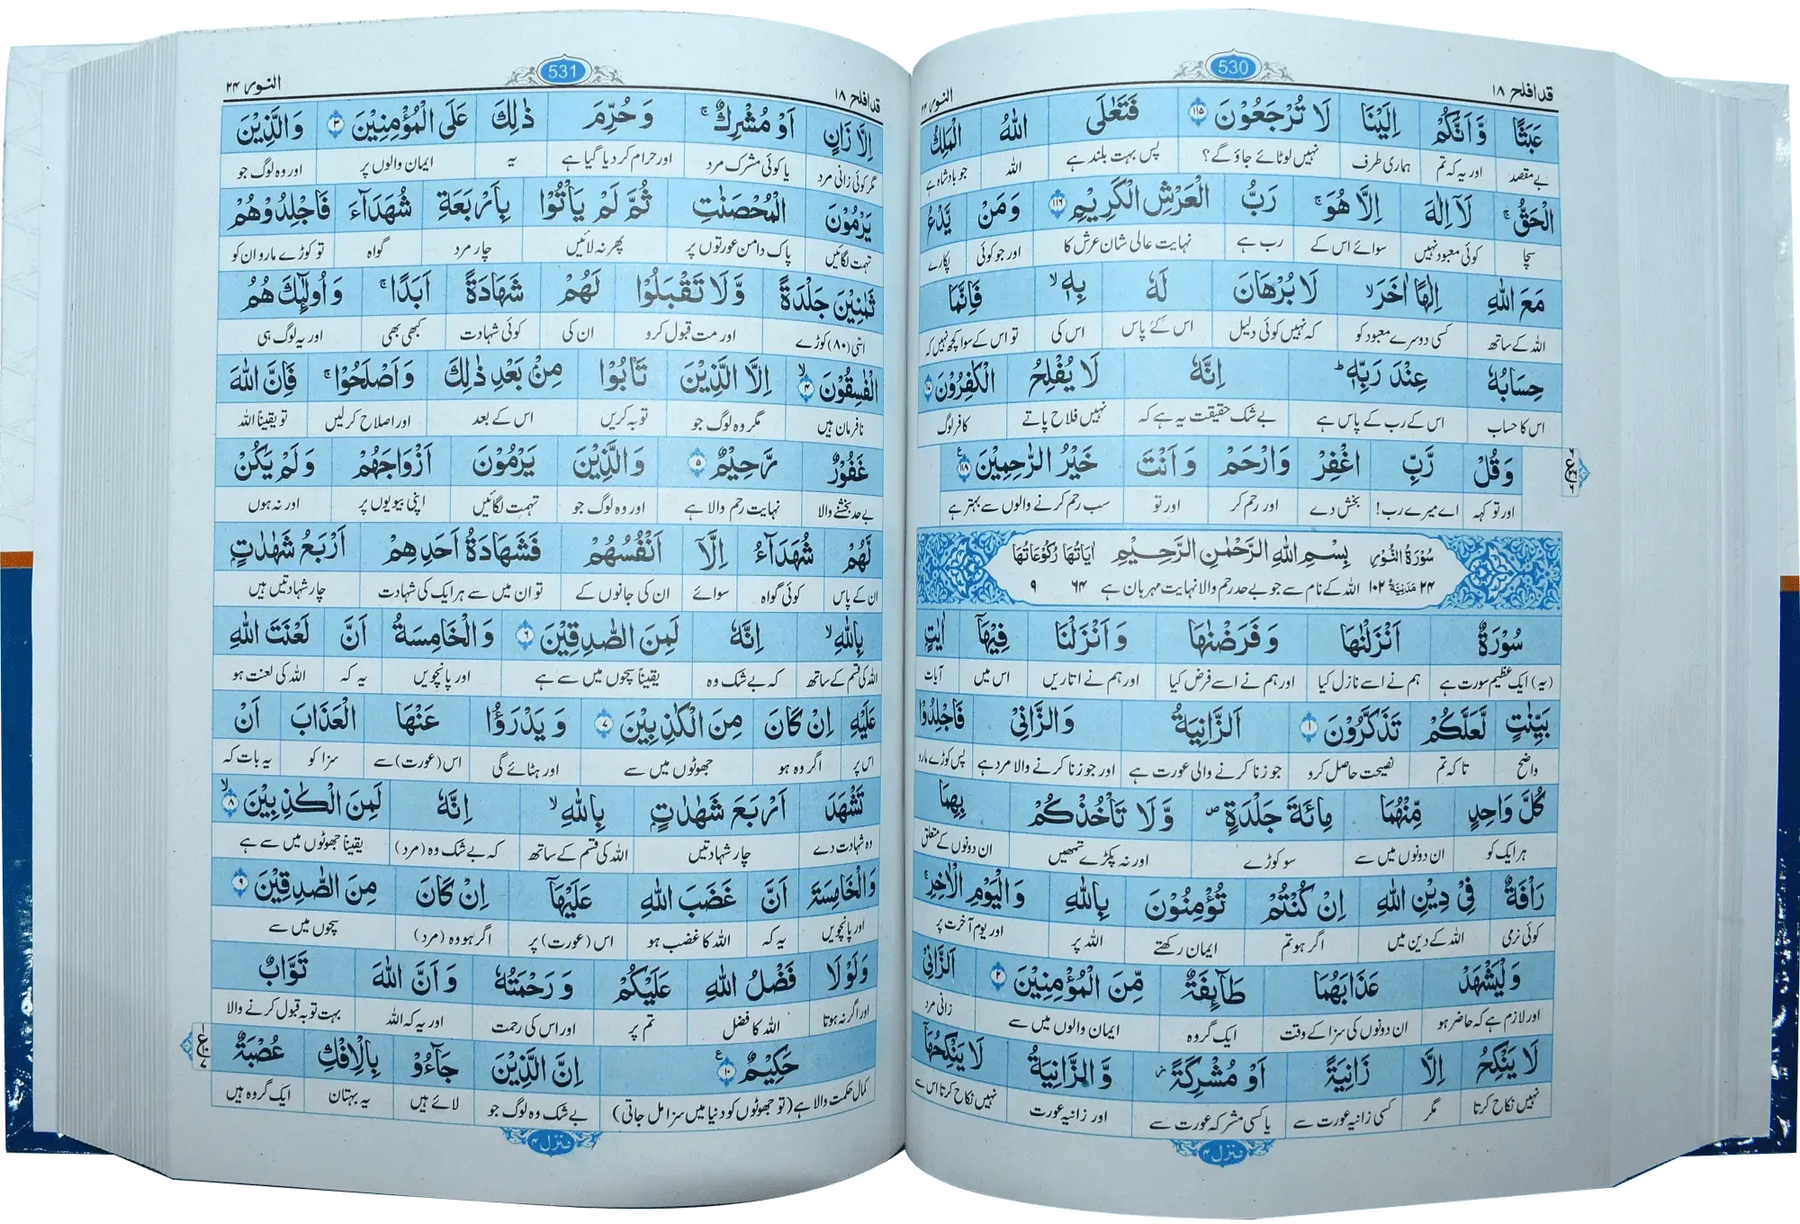 قد افلح ۱۸
530
النور ۲۴
عَبَثًا وَّاَنَّكُمْ اِلَيْنَا لَا تُرْجَعُوْنَ ۝۱۱۵ فَتَعٰلَى اللّٰهُ الْمَلِكُ
بے مقصد اور یہ کہ تم ہماری طرف نہیں لوٹائے جاؤ گے؟ پس بہت بلند ہے اللہ جو بادشاہ ہے
الْحَقُّ ۚ لَاۤ اِلٰهَ اِلَّا هُوَ ۚ رَبُّ الْعَرْشِ الْكَرِيْمِ ۝۱۱۶ وَمَنْ يَّدْعُ
سچا کوئی معبود نہیں سوائے اس کے رب ہے نہایت عالی شان عرش کا اور جو کوئی پکارے
مَعَ اللّٰهِ اِلٰهًا اٰخَرَ ۙ لَا بُرْهَانَ لَهٗ بِهٖ ۙ فَاِنَّمَا
اللہ کے ساتھ کسی دوسرے معبود کو کہ نہیں کوئی دلیل اس کے پاس اس کی تو اس کے سوا کچھ نہیں کہ
حِسَابُهٗ عِنْدَ رَبِّهٖ ؕ اِنَّهٗ لَا يُفْلِحُ الْكٰفِرُوْنَ
اس کا حساب اس کے رب کے پاس ہے بے شک حقیقت یہ ہے کہ نہیں فلاح پاتے کافر لوگ
وَقُلْ رَّبِّ اغْفِرْ وَارْحَمْ وَاَنْتَ خَيْرُ الرّٰحِمِيْنَ ۝۱۱۸
اور تو کہہ اے میرے رب! بخش دے اور رحم کر اور تو سب رحم کرنے والوں سے بہتر ہے
سُوْرَةُ النُّوْرِ بِسْمِ اللّٰهِ الرَّحْمٰنِ الرَّحِيْمِ اٰيَاتُهَا رُكُوْعَاتُهَا
۲۴ مَدَنِيَّةٌ ۱۰۲ اللہ کے نام سے جو بے حد رحم والا نہایت مہربان ہے ۶۴ ۹
سُوْرَةٌ اَنْزَلْنٰهَا وَفَرَضْنٰهَا وَاَنْزَلْنَا فِيْهَاۤ اٰيٰتٍۭ
(یہ) ایک عظیم سورت ہے ہم نے اسے نازل کیا اور ہم نے اسے فرض کیا اور ہم نے اتاریں اس میں آیات
بَيِّنٰتٍ لَّعَلَّكُمْ تَذَكَّرُوْنَ ۝۱ اَلزَّانِيَةُ وَالزَّانِيْ فَاجْلِدُوْا
واضح تاکہ تم نصیحت حاصل کرو جو زنا کرنے والی عورت ہے اور جو زنا کرنے والا مرد ہے پس کوڑے مارو
كُلَّ وَاحِدٍ مِّنْهُمَا مِائَةَ جَلْدَةٍ ۪ وَّلَا تَاْخُذْكُمْ بِهِمَا
ہر ایک کو ان دونوں میں سے سو کوڑے اور نہ پکڑے تمھیں ان دونوں کے متعلق
رَاْفَةٌ فِيْ دِيْنِ اللّٰهِ اِنْ كُنْتُمْ تُؤْمِنُوْنَ بِاللّٰهِ وَالْيَوْمِ الْاٰخِرِ ۚ
کوئی نرمی اللہ کے دین میں اگر ہو تم ایمان رکھتے اللہ پر اور یوم آخرت پر
وَلْيَشْهَدْ عَذَابَهُمَا طَآئِفَةٌ مِّنَ الْمُؤْمِنِيْنَ ۝۲ اَلزَّانِيْ
اور لازم ہے کہ حاضر ہو ان دونوں کی سزا کے وقت ایک گروہ ایمان والوں میں سے زانی مرد
لَا يَنْكِحُ اِلَّا زَانِيَةً اَوْ مُشْرِكَةً ؗ وَّالزَّانِيَةُ لَا يَنْكِحُهَاۤ
نہیں نکاح کرتا مگر کسی زانیہ عورت سے یا کسی مشرکہ عورت سے اور زانیہ عورت نہیں نکاح کرتا اس سے
منزل ۴
قد افلح ۱۸
531
النور ۲۴
اِلَّا زَانٍ اَوْ مُشْرِكٌ ۚ وَحُرِّمَ ذٰلِكَ عَلَى الْمُؤْمِنِيْنَ ۝۳ وَالَّذِيْنَ
مگر کوئی زانی مرد یا کوئی مشرک مرد اور حرام کر دیا گیا ہے یہ ایمان والوں پر اور وہ لوگ جو
يَرْمُوْنَ الْمُحْصَنٰتِ ثُمَّ لَمْ يَاْتُوْا بِاَرْبَعَةِ شُهَدَآءَ فَاجْلِدُوْهُمْ
تہمت لگائیں پاک دامن عورتوں پر پھر نہ لائیں چار مرد گواہ تو کوڑے مارو ان کو
ثَمٰنِيْنَ جَلْدَةً وَّلَا تَقْبَلُوْا لَهُمْ شَهَادَةً اَبَدًا ۚ وَاُولٰٓئِكَ هُمُ
اسّی (۸۰) کوڑے اور مت قبول کرو ان کی کوئی شہادت کبھی بھی اور یہ لوگ ہی
الْفٰسِقُوْنَ ۝۴ ۙ اِلَّا الَّذِيْنَ تَابُوْا مِنْۢ بَعْدِ ذٰلِكَ وَاَصْلَحُوْا ۚ فَاِنَّ اللّٰهَ
نافرمان ہیں مگر وہ لوگ جو توبہ کریں اس کے بعد اور اصلاح کر لیں تو یقیناً اللہ
غَفُوْرٌ رَّحِيْمٌ ۝۵ وَالَّذِيْنَ يَرْمُوْنَ اَزْوَاجَهُمْ وَلَمْ يَكُنْ
بے حد بخشنے والا نہایت رحم والا ہے اور وہ لوگ جو تہمت لگائیں اپنی بیویوں پر اور نہ ہوں
لَّهُمْ شُهَدَآءُ اِلَّاۤ اَنْفُسُهُمْ فَشَهَادَةُ اَحَدِهِمْ اَرْبَعُ شَهٰدٰتٍۭ
ان کے پاس کوئی گواہ سوائے ان کی جانوں کے تو ان میں سے ہر ایک کی شہادت چار شہادتیں ہیں
بِاللّٰهِ ۙ اِنَّهٗ لَمِنَ الصّٰدِقِيْنَ ۝۶ وَالْخَامِسَةُ اَنَّ لَعْنَتَ اللّٰهِ
اللہ کی قسم کے ساتھ کہ بے شک وہ یقیناً سچوں میں سے ہے اور پانچویں یہ کہ اللہ کی لعنت ہو
عَلَيْهِ اِنْ كَانَ مِنَ الْكٰذِبِيْنَ ۝۷ وَيَدْرَؤُا عَنْهَا الْعَذَابَ اَنْ
اس پر اگر وہ ہو جھوٹوں میں سے اور ہٹائے گی اس (عورت) سے سزا کو یہ بات کہ
تَشْهَدَ اَرْبَعَ شَهٰدٰتٍۭ بِاللّٰهِ ۙ اِنَّهٗ لَمِنَ الْكٰذِبِيْنَ ۝۸ ۙ
وہ شہادت دے چار شہادتیں اللہ کی قسم کے ساتھ کہ بے شک وہ (مرد) یقیناً جھوٹوں میں سے ہے
وَالْخَامِسَةَ اَنَّ غَضَبَ اللّٰهِ عَلَيْهَاۤ اِنْ كَانَ مِنَ الصّٰدِقِيْنَ ۝۹
اور پانچویں یہ کہ اللہ کا غضب ہو اس (عورت) پر اگر ہو وہ (مرد) سچوں میں سے
وَلَوْلَا فَضْلُ اللّٰهِ عَلَيْكُمْ وَرَحْمَتُهٗ وَاَنَّ اللّٰهَ تَوَّابٌ
اور اگر نہ ہوتا اللہ کا فضل تم پر اور اس کی رحمت اور یہ کہ اللہ بہت توبہ قبول کرنے والا
حَكِيْمٌ ۝۱۰ اِنَّ الَّذِيْنَ جَآءُوْ بِالْاِفْكِ عُصْبَةٌ
کمال حکمت والا ہے (تو جھوٹوں کو دنیا میں سزا مل جاتی) بے شک وہ لوگ جو لائے ہیں یہ بہتان ایک گروہ ہیں
منزل ۴